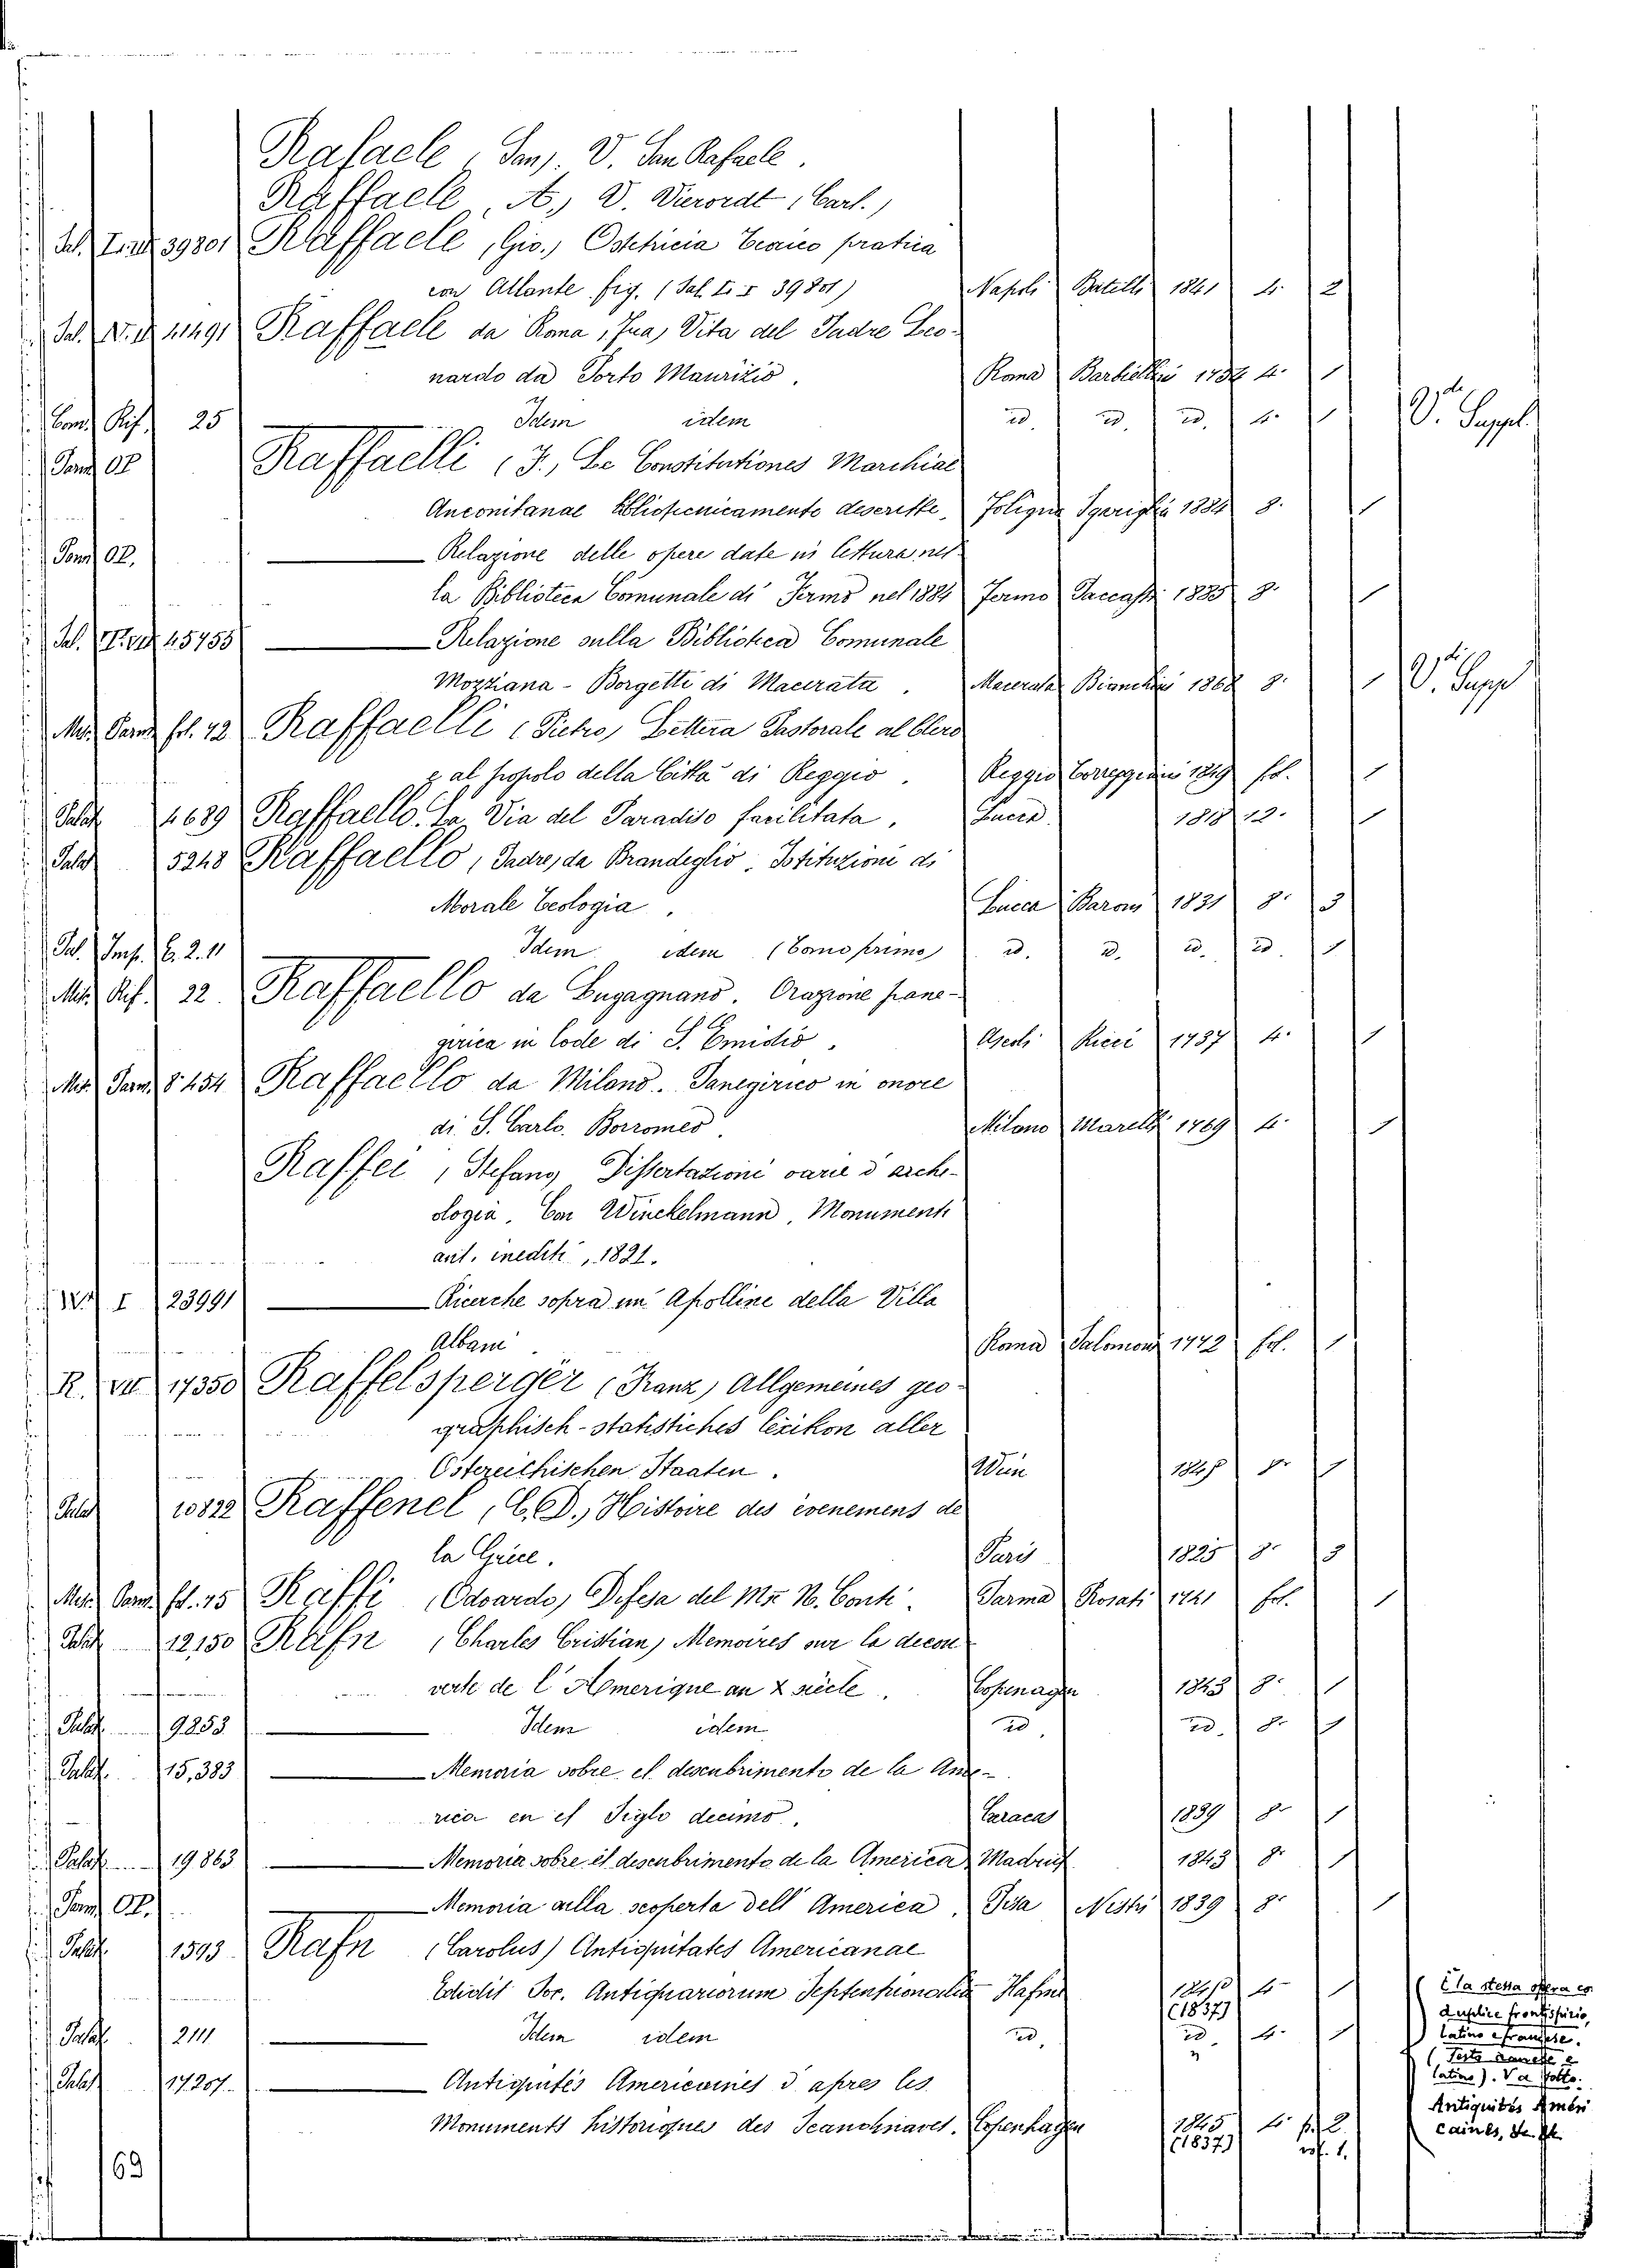 Rafaele (San) V. San Rafaele.
Raffaele (A.) V. Vierordt (Carl.)
Raffaele (Gio.) Ostetricia teorico pratica
39801
con Atlante fig. (Sal. 39801) Napoli Batelli 1841 4. 2
11491 Raffaele da Roma (Fra) Vita del Padre Leo-
nardo da Porto Maurizio. Roma Barbiellini 4. 1
25 Idem idem id. id. id. 4. 1 V. Suppl.
Raffaelli (F.) Le Constitutiones Marchiae
Anconitanae bibliograficamente descritte. Foligno Sgariglia 1884 8. 1
Relazione delle opere date in lettura nel-
la Biblioteca Comunale di Fermo nel 1884 Fermo Paccassi 1885 8. 1
45755 Relazione sulla Biblioteca Comunale
Mozziana - Borgetti di Macerata. Macerata Bianchini 1868 8. 1 V. Supp
Raffaelli (Pietro) Lettera Pastorale al Clero
e al popolo della Città di Reggio. Reggio 1849 fol. 1
Palat 4689 Raffaello. La Via del Paradiso facilitata. Lucca 1818 12. 1
Palat 5248 Raffaello (Padre) da Brandeglio. Istituzioni di
Morale Teologia. Lucca Baroni 1831 8. 3
6. 2. 11 Idem idem (Tomo primo) id. id. id. id. 1
22 Raffaello da Lugagnano. Orazione pane-
girica in lode di S. Emidio. Ascoli Ricci 1737 4. 1
Raffaello da Milano. Panegirico in onore
di S. Carlo Borromeo. Milano Marelli 1769 4. 1
Raffei (Stefano) Dissertazioni varie d'arche-
ologia. Con Winckelmann, Monumenti
ant. inediti, 1821.
I 23991 Ricerche sopra un Apolline della Villa
Albani. Roma Salomoni 1772 fol. 1
R. VII 17350 Raffelsperger (Franz) Allgemeines geo-
graphisch-statistiches lexikon aller
Östereichischen Staaten. Wien 8. 1
Palat 10822 Raffenel (C. D.) Histoire des évenemens de
la Grèce. Paris 1825 8. 3
Raffi (Odoardo) Defesa del Mse N. Conti. Parma Rosati 1741 fol. 1
Palat 12,150 Rafn (Charles Cristian) Memoires sur la decou-
verte de l'Amerique au X siècle. Copenagen 1843 8. 1
Palat. 9253 Idem idem id. id. 8. 1
Palat. 15,383 Memoria sobre el descubrimento de la Ame-
rica en el Siglo decimo. Caracas 1839 8. 1
Palat. 19863 Memoria sobre el descubrimento de la America Madrid 1843 8. 1
Memoria sulla scoperta dell'America. Pisa Nistri 1839 8. 1
Palat. 1593 Rafn (Carolus) Antiquitates Americanae
Edidit Soc. Antiquariorum Septentrionalia Hafniae 4. 1
(1837)
Palat. 2111 Idem idem id. id. 4. 1
Palat 17207. Antiquités Americaines d'apres les
Monuments historiques des Scandinaves. Copenhagen 1845 4. p. 2
(1837) vol. 1.
È la stessa opera co.
duplice frontispizio,
latino e francese.
(Testo danese e
latino). Va sotto:
Antiquités Améri
caines,
69